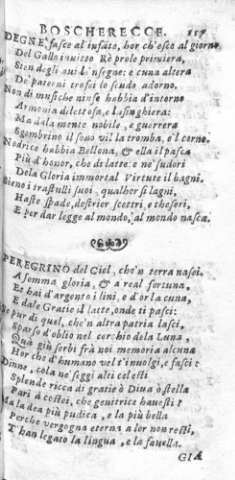 BOSCHERECCE. 157
DEGNE fasce al infāte, hor ch'esce al giorno
Del Gallo inuitto Rè prole primiera,
Sien degli aui l'insegne: e cuna altera
De paterni trofei lo scudo adorno.
Non di musiche ninfe habbia d'intorno
Armonia dilettosa, e lusinghiera:
Ma da la mente nobile, e guerrera
Sgombrino il sono vil la tromba, e'l corno.
Nodrice habbia Bellona, & ella il pasca
Più d'honor, che di latte: e ne' sudori
Dela Gloria immortal Virtute il bagni.
Sieno i trastulli suoi, qualhor si lagni,
Haste, spade, destrier, scettri, e thesori,
E per dar legge al mondo, al mondo nasca.
PEREGRINO del Ciel, che'n terra nasci,
A somma gloria, & a real fortuna,
Et hai d'argento i lini, e d'or la cuna,
E dale Gratie il latte, onde ti pasci:
Se pur di quel, che'n altra patria lasci,
Sparso d'oblio nel cerchio dela Luna,
Qua giù serbi frà noi memoria alcuna
Hor che d'humano vel t'inuolgi, e fasci:
Dinne, cola ne' seggi alti celesti
Splende ricca di gratie ò Diua ò stella
Pari a costei, che genitrice hauesti?
Ma la dea più pudica, e la più bella
Perche vergogna eterna a lor non resti,
T'han legato la lingua, e la fauella.
GIA